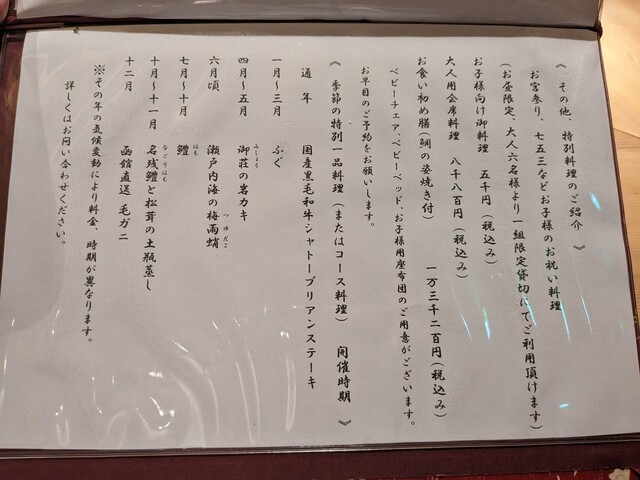 《 その他、特別料理のご紹介 》
お宮参り、七五三などお子様のお祝い料理
(お昼限定、大人六名様より一組限定貸切にてご利用頂けます)
お子様向け御料理 五千円(税込み)
大人用会席料理 八千八百円(税込み)
お食い初め膳(鯛の姿焼き付) 一万三千二百円(税込み)
ベビーチェア、ベビーベッド、お子様用座布団のご用意がございます。
お早目のご予約をお願いします。
《 季節の特別一品料理(またはコース料理) 開催時期 》
通年 国産黒毛和牛シャトーブリアンステーキ
一月〜三月 ふぐ
四月〜五月 御荘の岩カキ
みしょう
六月頃 瀬戸内海の梅雨蛸
つゆだこ
七月〜十月 鱧
はも
十月〜十一月 名残鱧と松茸の土瓶蒸し
なごりはも
十二月 函館直送 毛ガニ
※その年の気候変動により料金、時期が異なります。
詳しくはお問い合わせください。